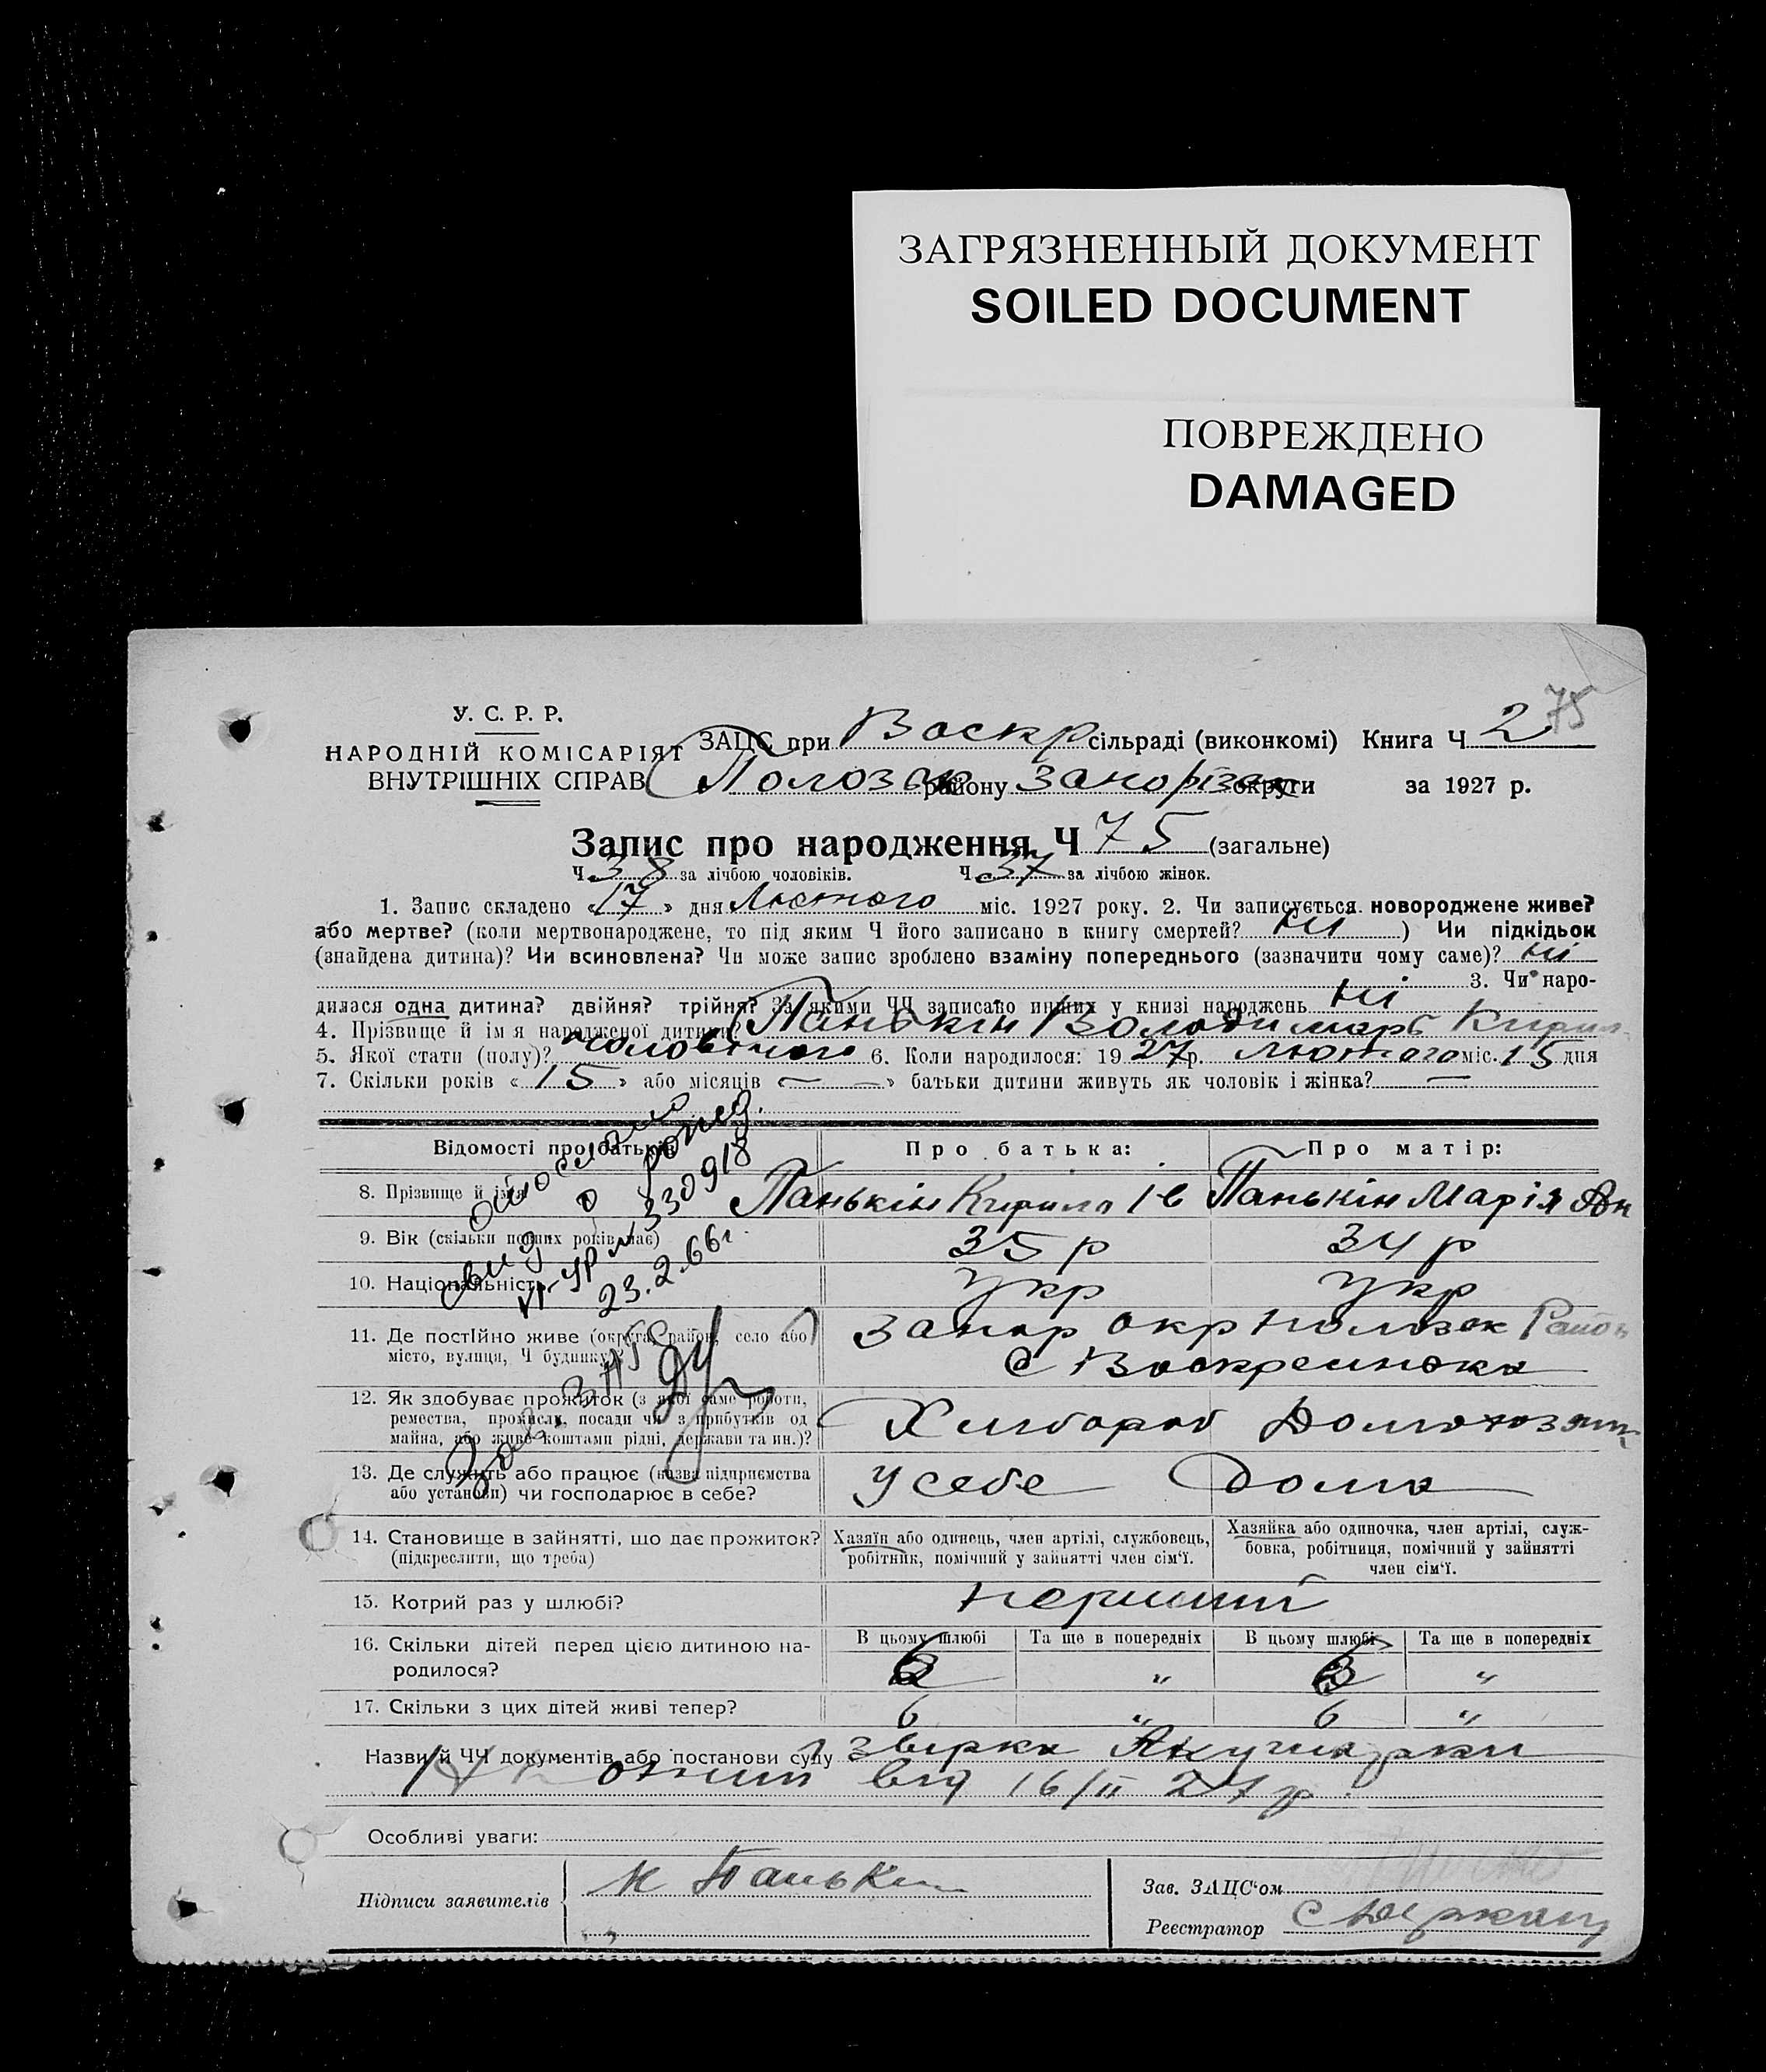 ЗАГРЯЗНЕННЫЙ ДОКУМЕНТ
SOILED DOCUMENT
ПОВРЕЖДЕНО
DAMAGED
75
У. С. Р. Р.
НАРОДНІЙ КОМІСАРІЯТ
ВНУТРІШНІХ СПРАВ
ЗАЦС при Воскр сільраді (виконкомі) Книга Ч 2
Полозьк району Запорізьк округи за 1927 р.
Запис про народження Ч 75 (загальне)
Ч 38 за лічбою чоловіків. Ч 37 за лічбою жінок.
1. Запис складено «17» дня Лютого міс. 1927 року. 2. Чи записується новороджене живе?
або мертве? (коли мертвонароджене, то під яким Ч його записано в книгу смертей? Ні ) Чи підкідьок
(знайдена дитина)? Чи всиновлена? Чи може запис зроблено взаміну попереднього (зазначити чому саме)? Ні
3. Чи наро-
дилася одна дитина? двійня? трійня? За якими ЧЧ записано инших у книзі народжень Ні
4. Прізвище й ім я народженої дитини? Панькін Володимарь Кирил
5. Якої стати (полу)? чоловічого 6. Коли народилося: 1927 р. Лютого міс. 15 дня
7. Скільки років «15» або місяців « — » батьки дитини живуть як чоловік і жінка? —
Відомості про батьків Про батька: Про матір:
8. Прізвище й імя Панькін Кирило Ів Панькін Марія Ан
9. Вік (скільки повних років має) 35 р 34 р
10. Національність Укр Укр
11. Де постійно живе (округа, район, село або Запор окр Полозьк Район
місто, вулиця, Ч будинку)? с Воскресенка
12. Як здобуває прожиток (з якої саме роботи, Хлибороб
ремества, промислу, посади чи з прибутків од
майна, або живе коштами рідні, держави та ин.)?
13. Де служить або працює (назва підприємства У себе Дома
або установи) чи господарює в себе?
14. Становище в зайнятті, що дає прожиток? Хазяїн або одинець, член артілі, службовець, Хазяйка або одиночка, член артілі, служ-
(підкреслити, що треба) робітник, помічний у зайнятті член сім'ї. бовка, робітниця, помічний у зайнятті
член сім'ї.
15. Котрий раз у шлюбі? перший
16. Скільки дітей перед цією дитиною на- В цьому шлюбі Та ще в попередніх В цьому шлюбі Та ще в попередніх
родилося? 6 „ 6 „
17. Скільки з цих дітей живі тепер? 6 „ 6 „
Назви й ЧЧ документів або постанови суду Акушарки
від 16/II 27 р.
Особливі уваги:
Підписи заявителів К Панькин
Зав. ЗАЦС'ом
Реєстратор
свид. о рожд.
330918
23.2.66 г.
Зав. ЗАГС